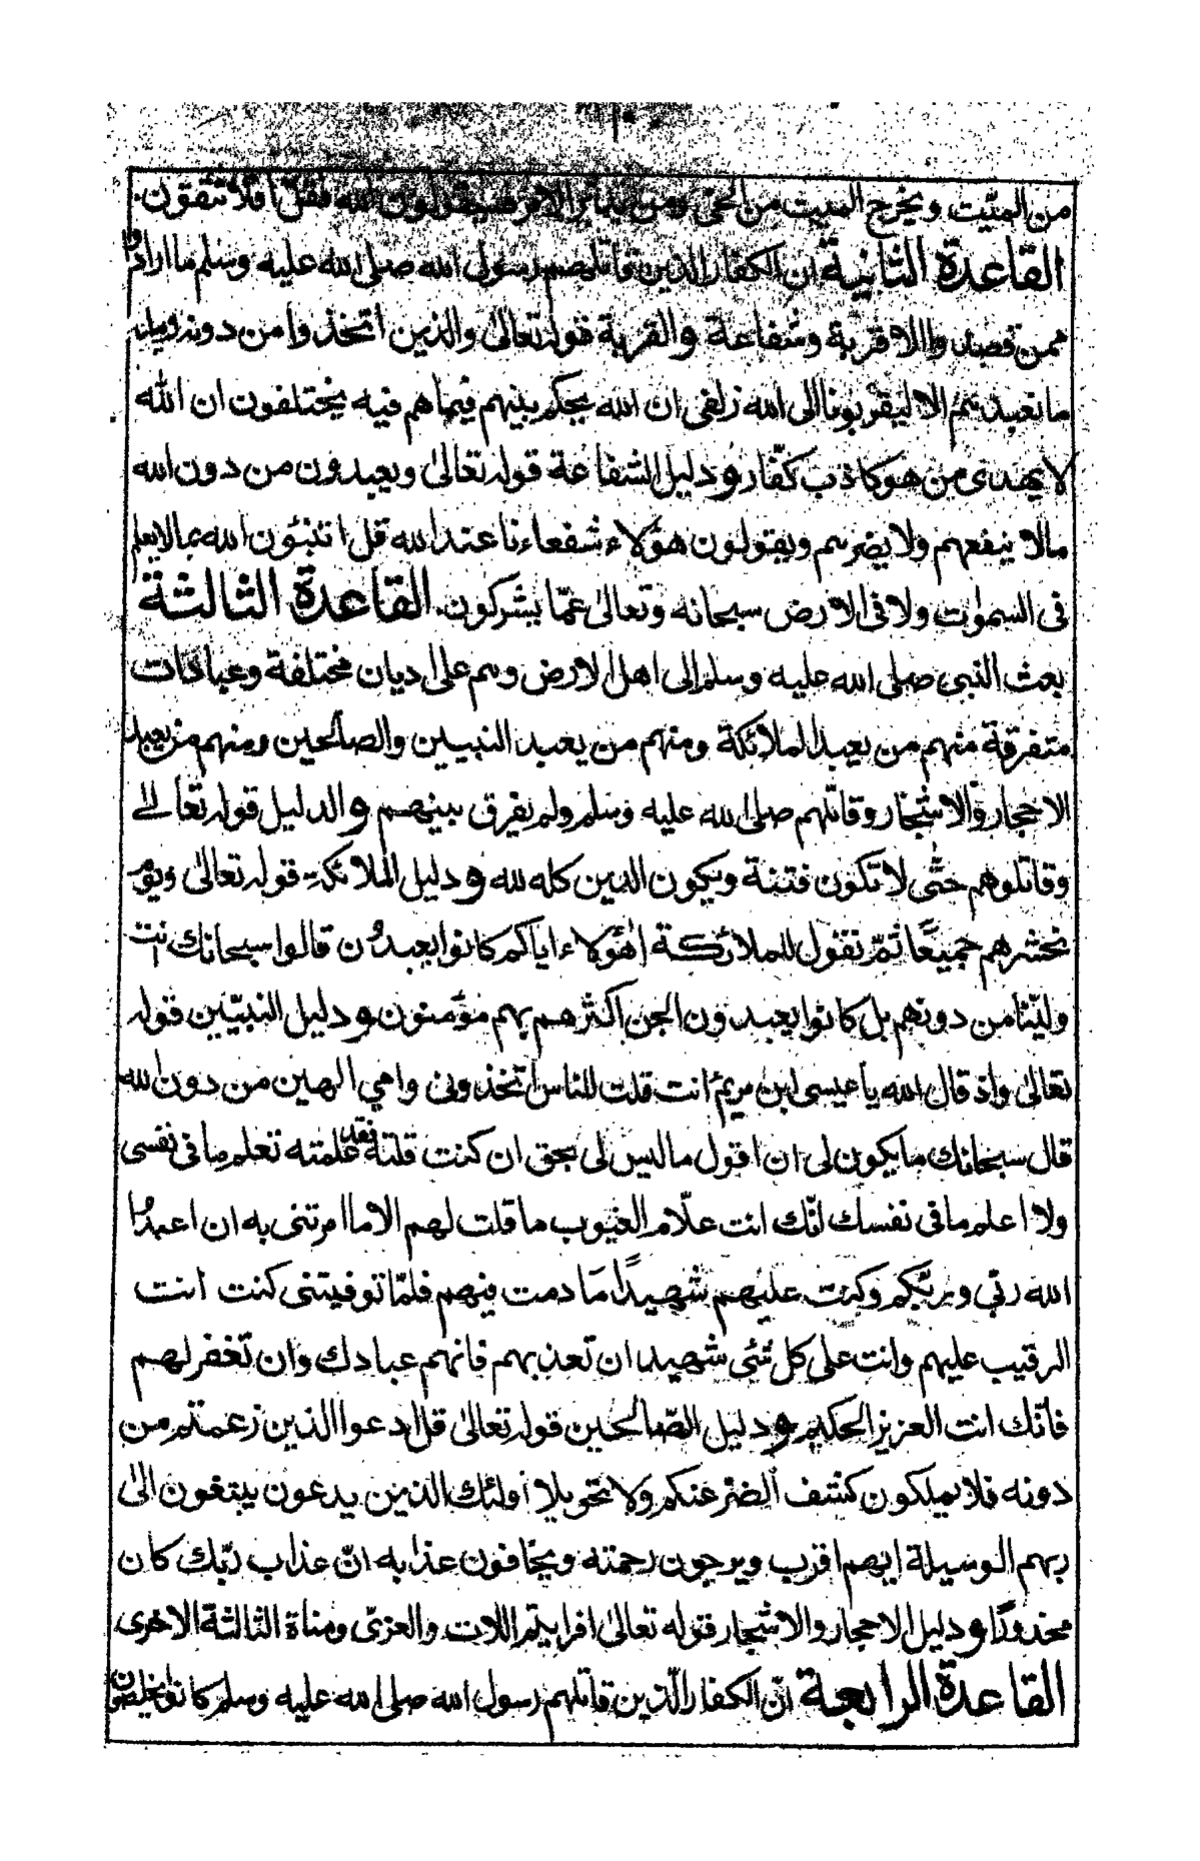 من الميّت ويخرج الميت من الحي ومن يدبّر الامر فسيقولون الله فقل افلا تتقون.
القاعدة الثانية ان الكفار الذين قاتلهم رسول الله صلى الله عليه وسلم ما ارادوا
ممن قصدوا الا قربة وشفاعة والقربة قوله تعالىٰ والذين اتخذوا من دونه
ما نعبدهم الا ليقربونا الى الله زلفى ان الله يحكم بينهم فيما هم فيه يختلفون ان الله
لا يهدى من هو كاذب كفّار ودليل الشفاعة قوله تعالىٰ ويعبدون من دون الله
مالا ينفعهم ولا يضرهم ويقولون هؤلاء شفعاءنا عند الله قل اتنبئون الله بما لا يعلم
فى السموٰت ولا فى الارض سبحانه وتعالىٰ عمّا يشركون. القاعدة الثالثة
بعث النبى صلى الله عليه وسلم الى اهل الارض وهم على اديان مختلفة وعبادات
متفرقة منهم من يعبد الملائكة ومنهم من يعبد النبيين والصالحين ومنهم من يعبد
الاحجار والاشجار وقاتلهم صلى الله عليه وسلم ولم يفرق بينهم والدليل قوله تعالىٰ
وقاتلوهم حتّى لا تكون فتنة ويكون الدين كله لله ودليل الملائكة قوله تعالىٰ ويوم
نحشرهم جميعًا ثمّ نقول للملائكة اهٰؤلاء اياكم كانوا يعبدون قالوا سبحانك انت
وليّنا من دونهم بل كانوا يعبدون الجن اكثرهم بهم مؤمنون ودليل النبيّين قوله
تعالىٰ واذ قال الله يا عيسى ابن مريم ءانت قلت للناس اتخذونى وامي الهين من دون الله
قال سبحانك ما يكون لى ان اقول ما ليس لى بحق ان كنت قلته فقد علمته تعلم ما فى نفسى
ولا اعلم ما فى نفسك انّك انت علّام الغيوب ما قلت لهم الا ما امرتنى به ان اعبدوا
الله ربّي وربّكم وكنت عليهم شهيدًا مَا دمت فيهم فلمّا توفيتنى كنت انت
الرقيب عليهم وانت على كل شئى شهيد ان تعذبهم فانهم عبادك وان تغفر لهم
فانّك انت العزيز الحكيم ودليل الصّالحين قوله تعالىٰ قل ادعوا الذين زعمتم من
دونه فلا يملكون كشف الضر عنكم ولا تحويلا اولئك الذين يدعون يبتغون الىٰ
ربهم الوسيلة ايهم اقرب ويرجون رحمته ويخافون عذابه انّ عذاب ربّك كان
محذورًا ودليل الاحجار والاشجار قوله تعالىٰ افرايتم اللات والعزّى ومناة الثالثة الاخرى
القاعدة الرابعة انّ الكفار الّذين قاتلهم رسول الله صلى الله عليه وسلم كانوا يخلصون